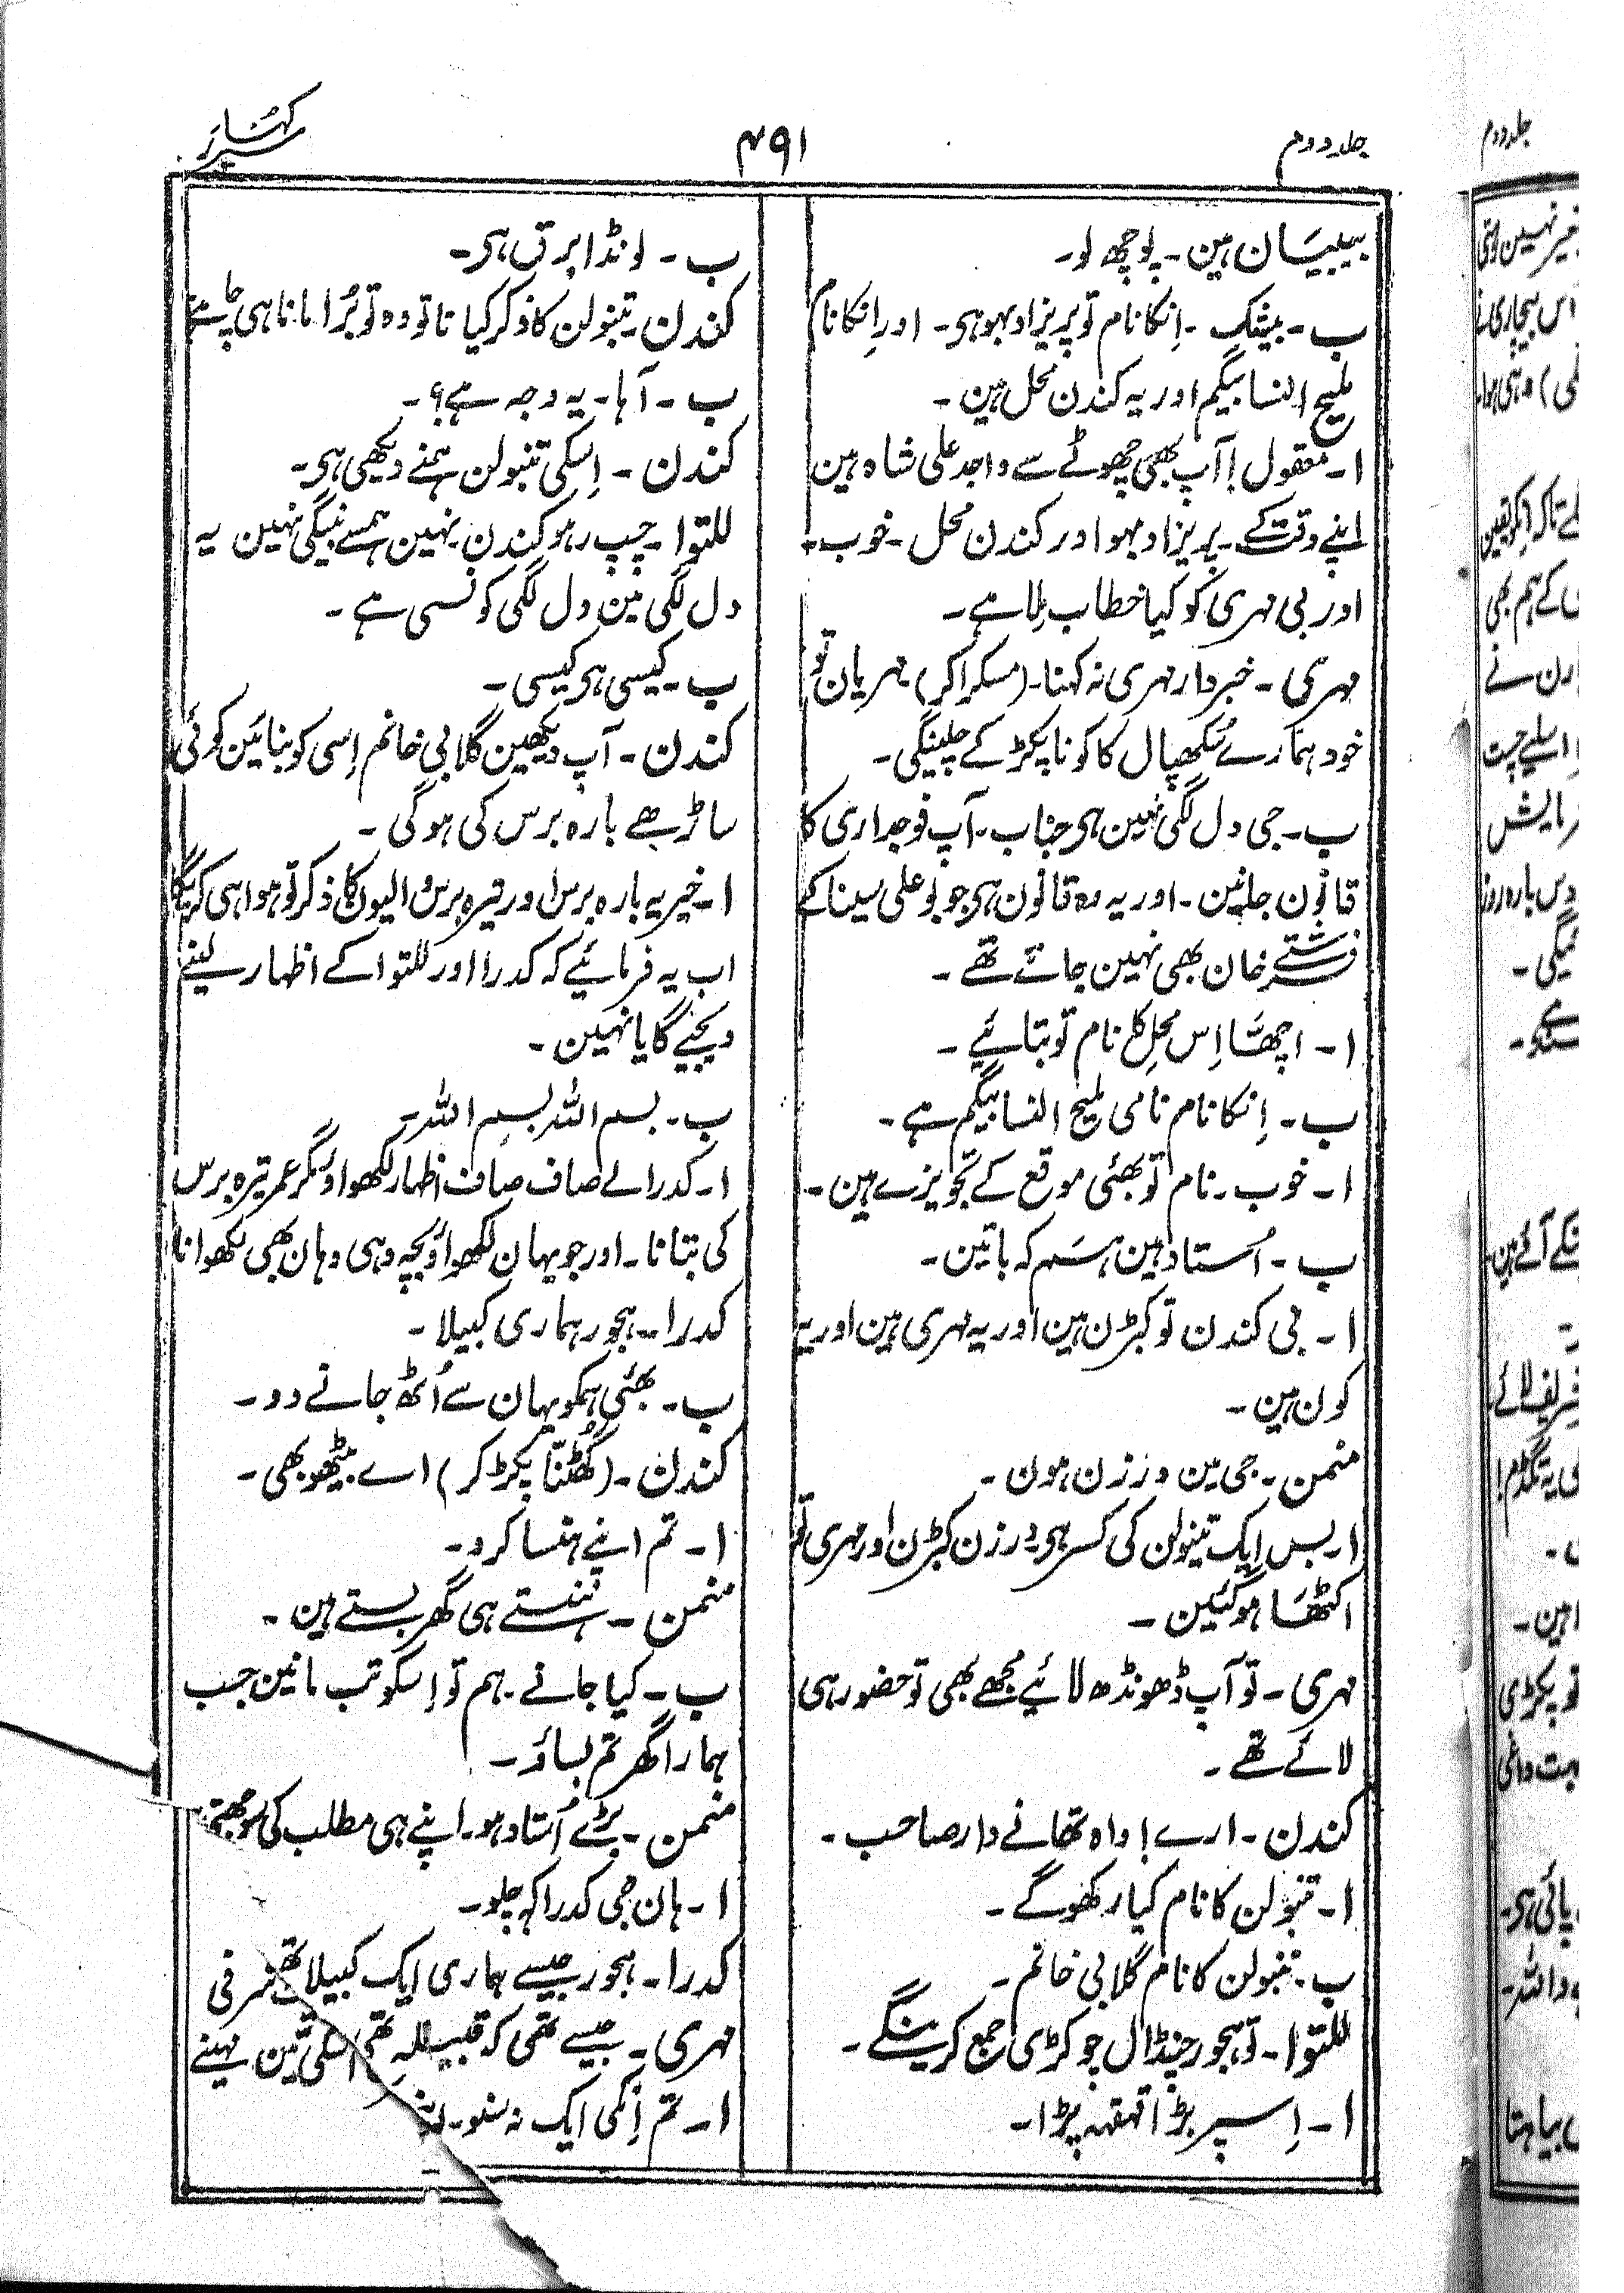 جلد دوم
۴۹۱
سیر کہسار
بیبیان ہین۔ پوچھ لو۔
ب۔ بیشک۔ اِنکا نام تو پریزاد بہو ہی۔ اور اِنکا نام
ملیح النسا بیگم اور یہ کندن محل ہین۔
ا۔ معقول! آپ بھی چھوٹے سے واجد علی شاہ ہین
اپنے وقت کے۔ پریزاد بہو اور کندن محل۔ خوب۔
اور بی مہری کو کیا خطاب ملا ہے۔
مہری۔ خبردار مہری نہ کہنا۔ (مسکرا کر) مہریان تو
خود ہمارے سُکھپال کا کونا پکڑ کے چلینگی۔
ب۔ جی دل لگی نہین ہی جناب۔ آپ فوجداری کا
قانون جانین۔ اور یہ وہ قانون ہی جو بو علی سینا کے
فرشتے خان بھی نہین جانتے تھے۔
ا۔ اچھا اِس محل کا نام تو بتائیے۔
ب۔ اِنکا نام نامی ملیح النسا بیگم ہے۔
ا۔ خوب۔ نام تو بھئی موقع کے تجویزے ہین۔
ب۔ اُستاد ہین ہسَم کہ باتین۔
ا۔ بی کندن تو کبڑن ہین اور یہ مہری ہین اور یہ
کون ہین۔
منمن۔ جی مین درزن ہون۔
ا۔ بس اِیک تنبولن کی کسر ہی۔ درزن کبڑن اور مہری تو
اکٹھا ہو گئین۔
مہری۔ تو آپ ڈھونڈھ لائیے مجھے بھی تو حضور ہی
لائے تھے۔
کندن۔ ارے! واہ تھانے دار صاحب۔
ا۔ تنبولن کا نام کیا رکھو گے۔
ب۔ تنبولن کا نام گلابی خانم۔
للتوا۔ تو ہجور چنڈال چوکڑی جمع کرینگے۔
ا۔ اِسپر بڑا قہقہہ پڑا۔
ب۔ لونڈا برق ہی۔
کندن۔ تنبولن کا ذکر کیا نا تو وہ تو بُرا مانا ہی چاہے
ب۔ آہا۔ یہ وجہ ہے؟۔
کندن۔ اِسکی تنبولن ہمنے دیکھی ہی۔
للتوا۔ چپ رہو کندن۔ نہین ہمسے نبیگی نہین یہ
دل لگی مین دل لگی کونسی ہے۔
ب۔ کیسی ہی کیسی۔
کندن۔ آپ دیکھین گلابی خانم اِسی کو بنائین کوئی
ساڑھے بارہ برس کی ہو گی۔
ا۔ خیر یہ بارہ برس اور تیرہ برس والیون کا ذکر تو ہوا ہی کریگا
اب یہ فرمائیے کہ کدرا اور للتوا کے اظہار لینے
دیجیے گا یا نہین۔
ب۔ بسم اللہ بسم اللہ۔
ا۔ کدرا لے صاف صاف اظہار لکھوا و مگر عمر تیرہ برس
کی بتانا۔ اور جو یہان لکھوا ؤ بچہ وہی وہان بھی لکھوانا
کدرا۔ ہجور ہماری کبیلا۔
ب۔ بھئی ہمکو یہان سے اُٹھ جانے دو۔
کندن۔ (گُھٹنّا پکڑ کر) اے بیٹھو بھی۔
ا۔ تم اپنے ہنسا کرو۔
منمن۔ ہنستے ہی گھر بستے ہین۔
ب۔ کیا جانے۔ ہم تو اِسکو تب مانین جب
ہمارا گھر تم بساؤ۔
منمن۔ بڑے اُستاد ہو۔ اپنے ہی مطلب کی سوجھتی
ا۔ ہان جی کدرا کہہ چلو۔
کدرا۔ ہجور جیسے ہماری ایک کبیلا تھی
مہری۔ جیسے تھی کہ قبیلہ تھی اسکی تین مہینے
ا۔ تم اِنکی ایک نہ سنو۔